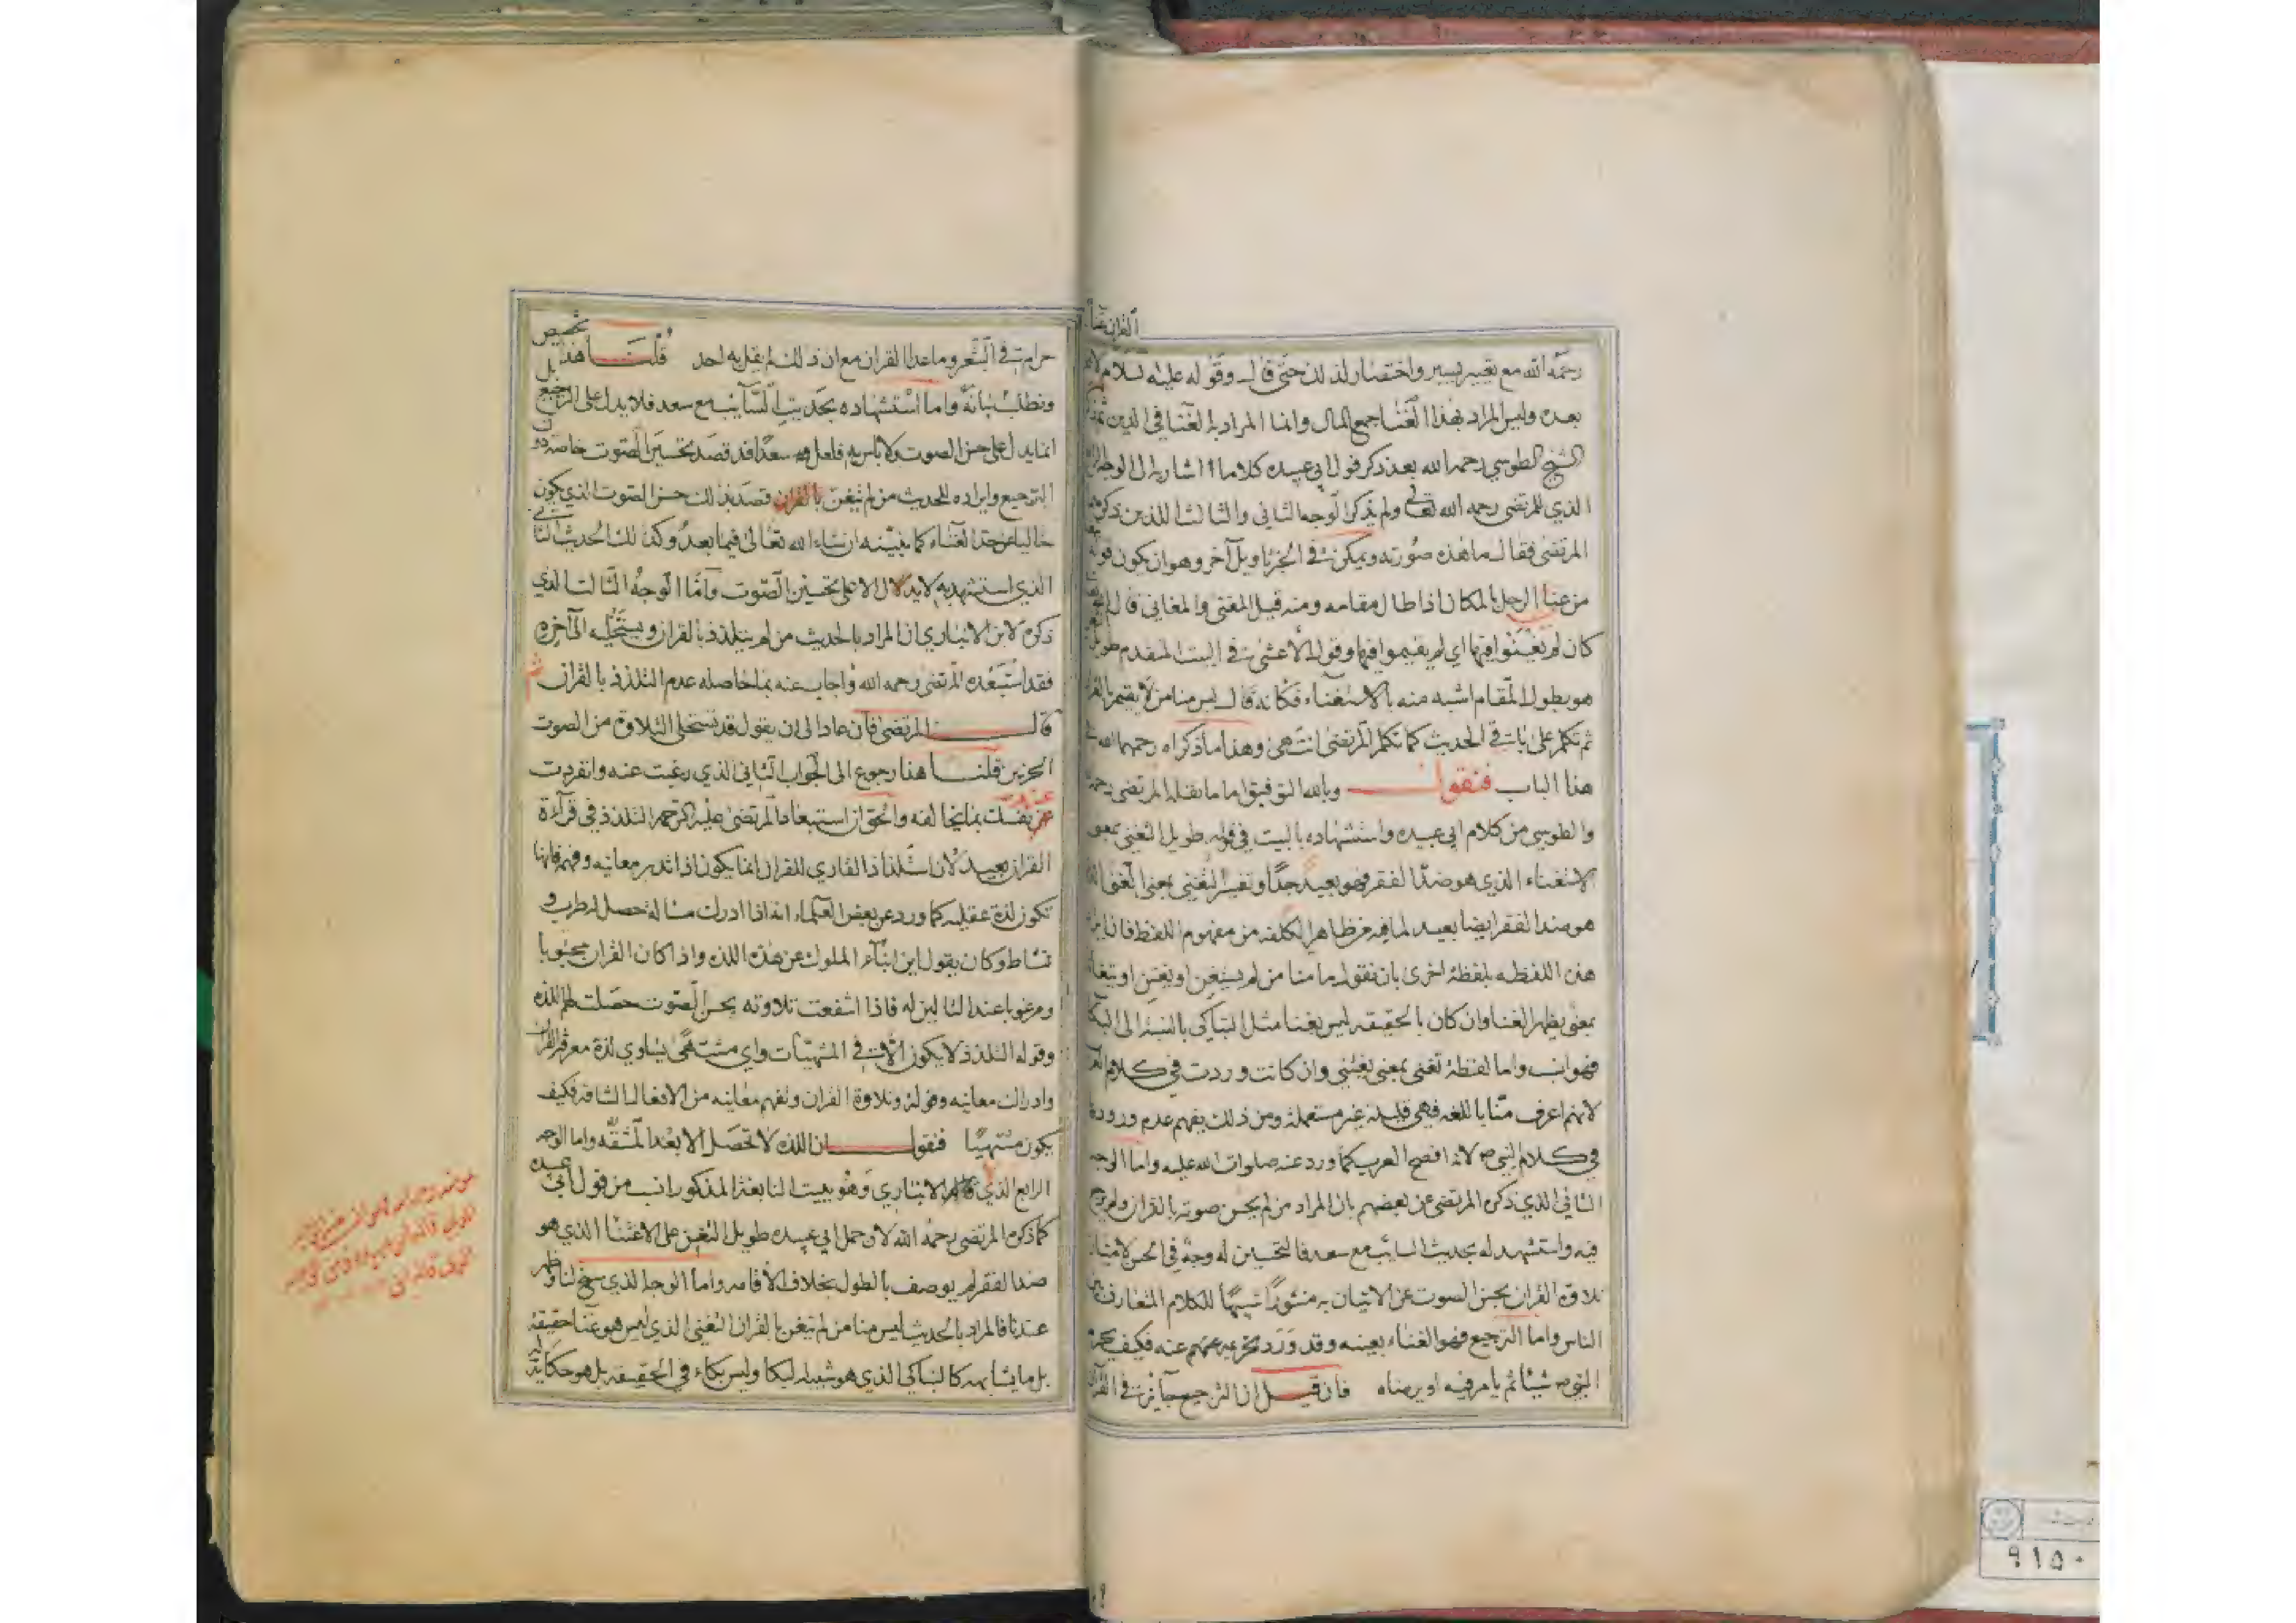 القران غنا
رحمه الله مع تغيير يسير واختصار لذلك حتى قال وقوله عليه السلام لا
بعده وليس المراد بهذا الغنا جمع المال وانما المراد به الغنا في الدين
الشيخ الطوسي رحمه الله بعد ذكر قول ابي عبيده كلاما اشار به الى الوجه
الذي للمرتضى رحمه الله تعالى ولم يذكر الوجه الثاني والثالث اللذين ذكره
المرتضى فقال ما هذه صورته ويمكن في الخبر تاويل آخر وهو ان يكون قوله
من غنا الرجل بالمكان اذا طال مقامه ومنه قيل المغنى والمغاني قال
كان لم يغنوا فيها اي لم يقيموا فيها وقول الأعشى في البيت المتقدم طويل
هو بطول المقام اشبه منه بالاستغناء فكانه قال ليس منا من لا يقيم بالقران
ثم تكلم على باقي الحديث كما تكلم المرتضى انتهى وهذا ما ذكراه رحمهما الله في
هذا الباب فنقول وبالله التوفيق اما ما نقله المرتضى رحمه
والطوسي من كلام ابي عبيده واستشهاده بالبيت في قوله طويل التغني بمعنى
الاستغناء الذي هو ضد الفقر فهو بعيد جدا وتفسير التغني بمعنى الغنى الذي
هو ضد الفقر ايضا بعيد لما فيه من ظاهر الكلفه من مفهوم اللفظ فان
هذه اللفظه بلفظة اخرى بان نقول ما منا من لم يستغن او يغتن او يتغانا
بمعنى يظهر الغنا وان كان بالحقيقه ليس بغنا مثل التباكي بالنسبة الى البكا
فهو انسب واما لفظة تغنى بمعنى يغتني وان كانت وردت في كلام العرب
لانهم اعرف منا باللغه فهي قليلة غير مستعملة ومن ذلك يفهم عدم وروده
في كلام النبي ص لانه افصح العرب كما ورد عنه صلوات الله عليه واما الوجه
الثاني الذي ذكره المرتضى عن بعضهم بان المراد من لم يحسن صوته بالقران ولم يرجع
فيه واستشهد له بحديث السايب مع سعد فالتحسين له وجه في الحسن لامتياز
تلاوة القران بحسن الصوت عن الاتيان به منثورا شبيها للكلام المتعارف بين
الناس واما الترجيع فهو الغناء بعينه وقد ورد تحريمه عنهم عنه فكيف يحرم
النبي ص شيئا ثم يامر فيه او يرضاه فان قيل ان الترجيع جايز في القران
حرام في الشعر وما عدا القران مع ان ذلك لم يقل به احد قلنا هذا تخصيص بل
ونطلب بيانه واما استشهاده بحديث السايب مع سعد فلا يدل على الترجيع
انما يدل على حسن الصوت ولا باس به فلعل سعدا قد قصد تحسين الصوت خاصه دون
الترجيع وايراده للحديث من لم يتغن بالقران قصد بذلك حسن الصوت الذي يكون
خاليا عن حد الغناء كما نبينه ان شاء الله تعالى فيما بعد وكذلك الحديث الثاني
الذي استشهد به لا يدلال الا على تحسين الصوت واما الوجه الثالث الذي
ذكره لابن الانباري ان المراد بالحديث من لم يتلذذ بالقران ويستحله الى آخره
فقد استبعده المرتضى رحمه الله واجاب عنه بما حاصله عدم التلذذ بالقران ثم
قال المرتضى فان عاد الى ان يقول قد تستحلى التلاوة من الصوت
الحزين قلنا هذا رجوع الى الجواب الثاني الذي رغبت عنه وانفردت
عند نفسك بما يخالفه والحق ان استبعاد المرتضى عليه الرحمه التلذذ في قرآءة
القران بعيد لان استلذاذ القاري للقران انما يكون اذا تدبر معانيه وفهمه فانها
تكون لذة عقليه كما ورد عن بعض العلماء انه اذا ادرك مسالة حصل له طرب و
نشاط وكان يقول اين ابناء الملوك عن هذه اللذه واذا كان القران محبوبا
ومرغوبا عند التالين له فاذا اشفعت تلاوته بحسن الصوت حصلت لهم اللذه
وقوله التلذذ لا يكون الا في المشتهيات واي مشتهى يساوي لذة معرفة القران
وادراك معانيه وقوله وتلاوة القران وتفهم معانيه من الافعال الشاقه فكيف
يكون مشتهيا فنقول ان اللذه لا تحصل الا بعد المشقه واما الوجه
الرابع الذي الانباري وهو ببيت النابغة المذكور انسب من قول ابي عبيده
كما ذكره المرتضى رحمه الله لان حمل ابي عبيده طويل التغن على الاغتنا الذي هو
ضد الفقر لم يوصف بالطول بخلاف الأقامه واما الوجه الذي سنح لنا وظهر
عندنا فالمراد بالحديث ليس منا من لم يتغن بالقران التغني الذي ليس هو غنا حقيقة
بل ما يشابهه كالتباكي الذي هو شبيه البكا وليس بكاء في الحقيقه بل هو حكاية
٩١٥٠